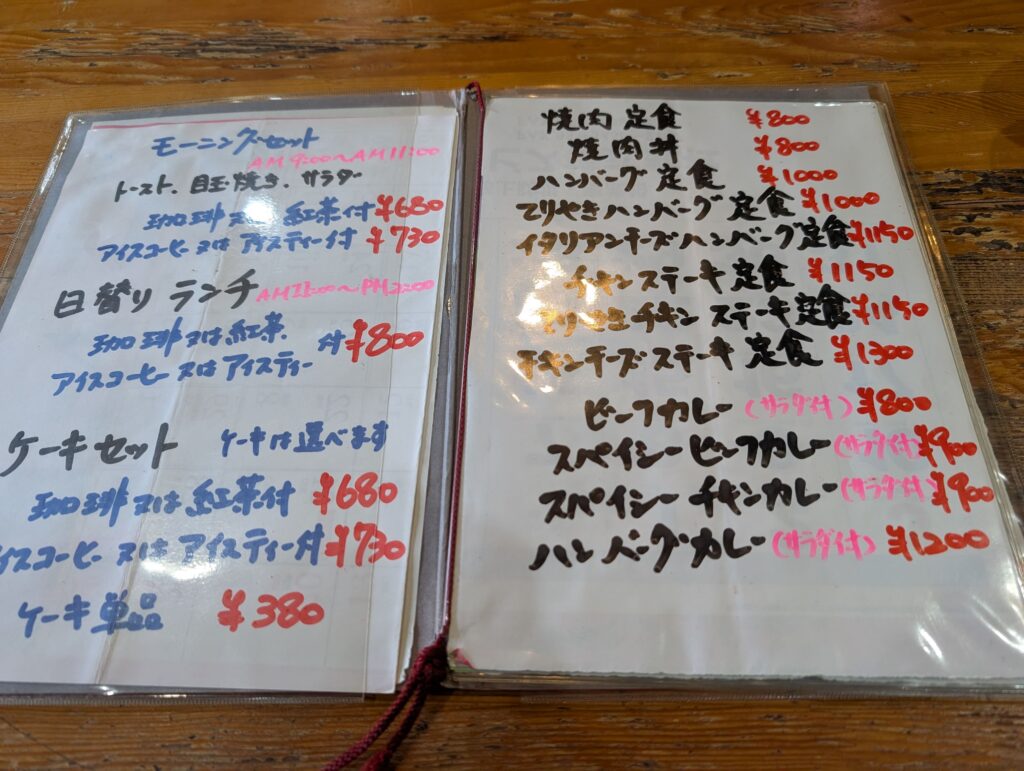 モーニングセット
AM 9:00～AM11:00
トースト、目玉焼き、サラダ
珈琲又は紅茶付 ¥680
アイスコーヒー又はアイスティー付 ¥730
日替りランチ AM11:00～PM2:00
珈琲又は紅茶
付 ¥800
アイスコーヒー又はアイスティー
ケーキセット ケーキは選べます
珈琲又は紅茶付 ¥680
アイスコーヒー又はアイスティー付 ¥730
ケーキ単品 ¥380
焼肉定食 ¥800
焼肉丼 ¥800
ハンバーグ定食 ¥1000
てりやきハンバーグ定食 ¥1000
イタリアンチーズハンバーグ定食 ¥1150
チキンステーキ定食 ¥1150
てりやきチキンステーキ定食 ¥1150
チキンチーズステーキ定食 ¥1300
ビーフカレー(サラダ付) ¥800
スペイシービーフカレー(サラダ付) ¥900
スパイシーチキンカレー(サラダ付) ¥900
ハンバーグカレー(サラダ付) ¥1200